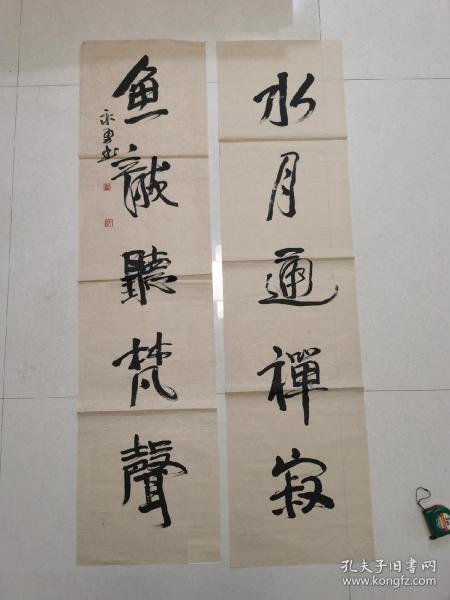 水月通禪寂
魚龍聽梵聲
永勇书
孔夫子旧书网
www.kongfz.com